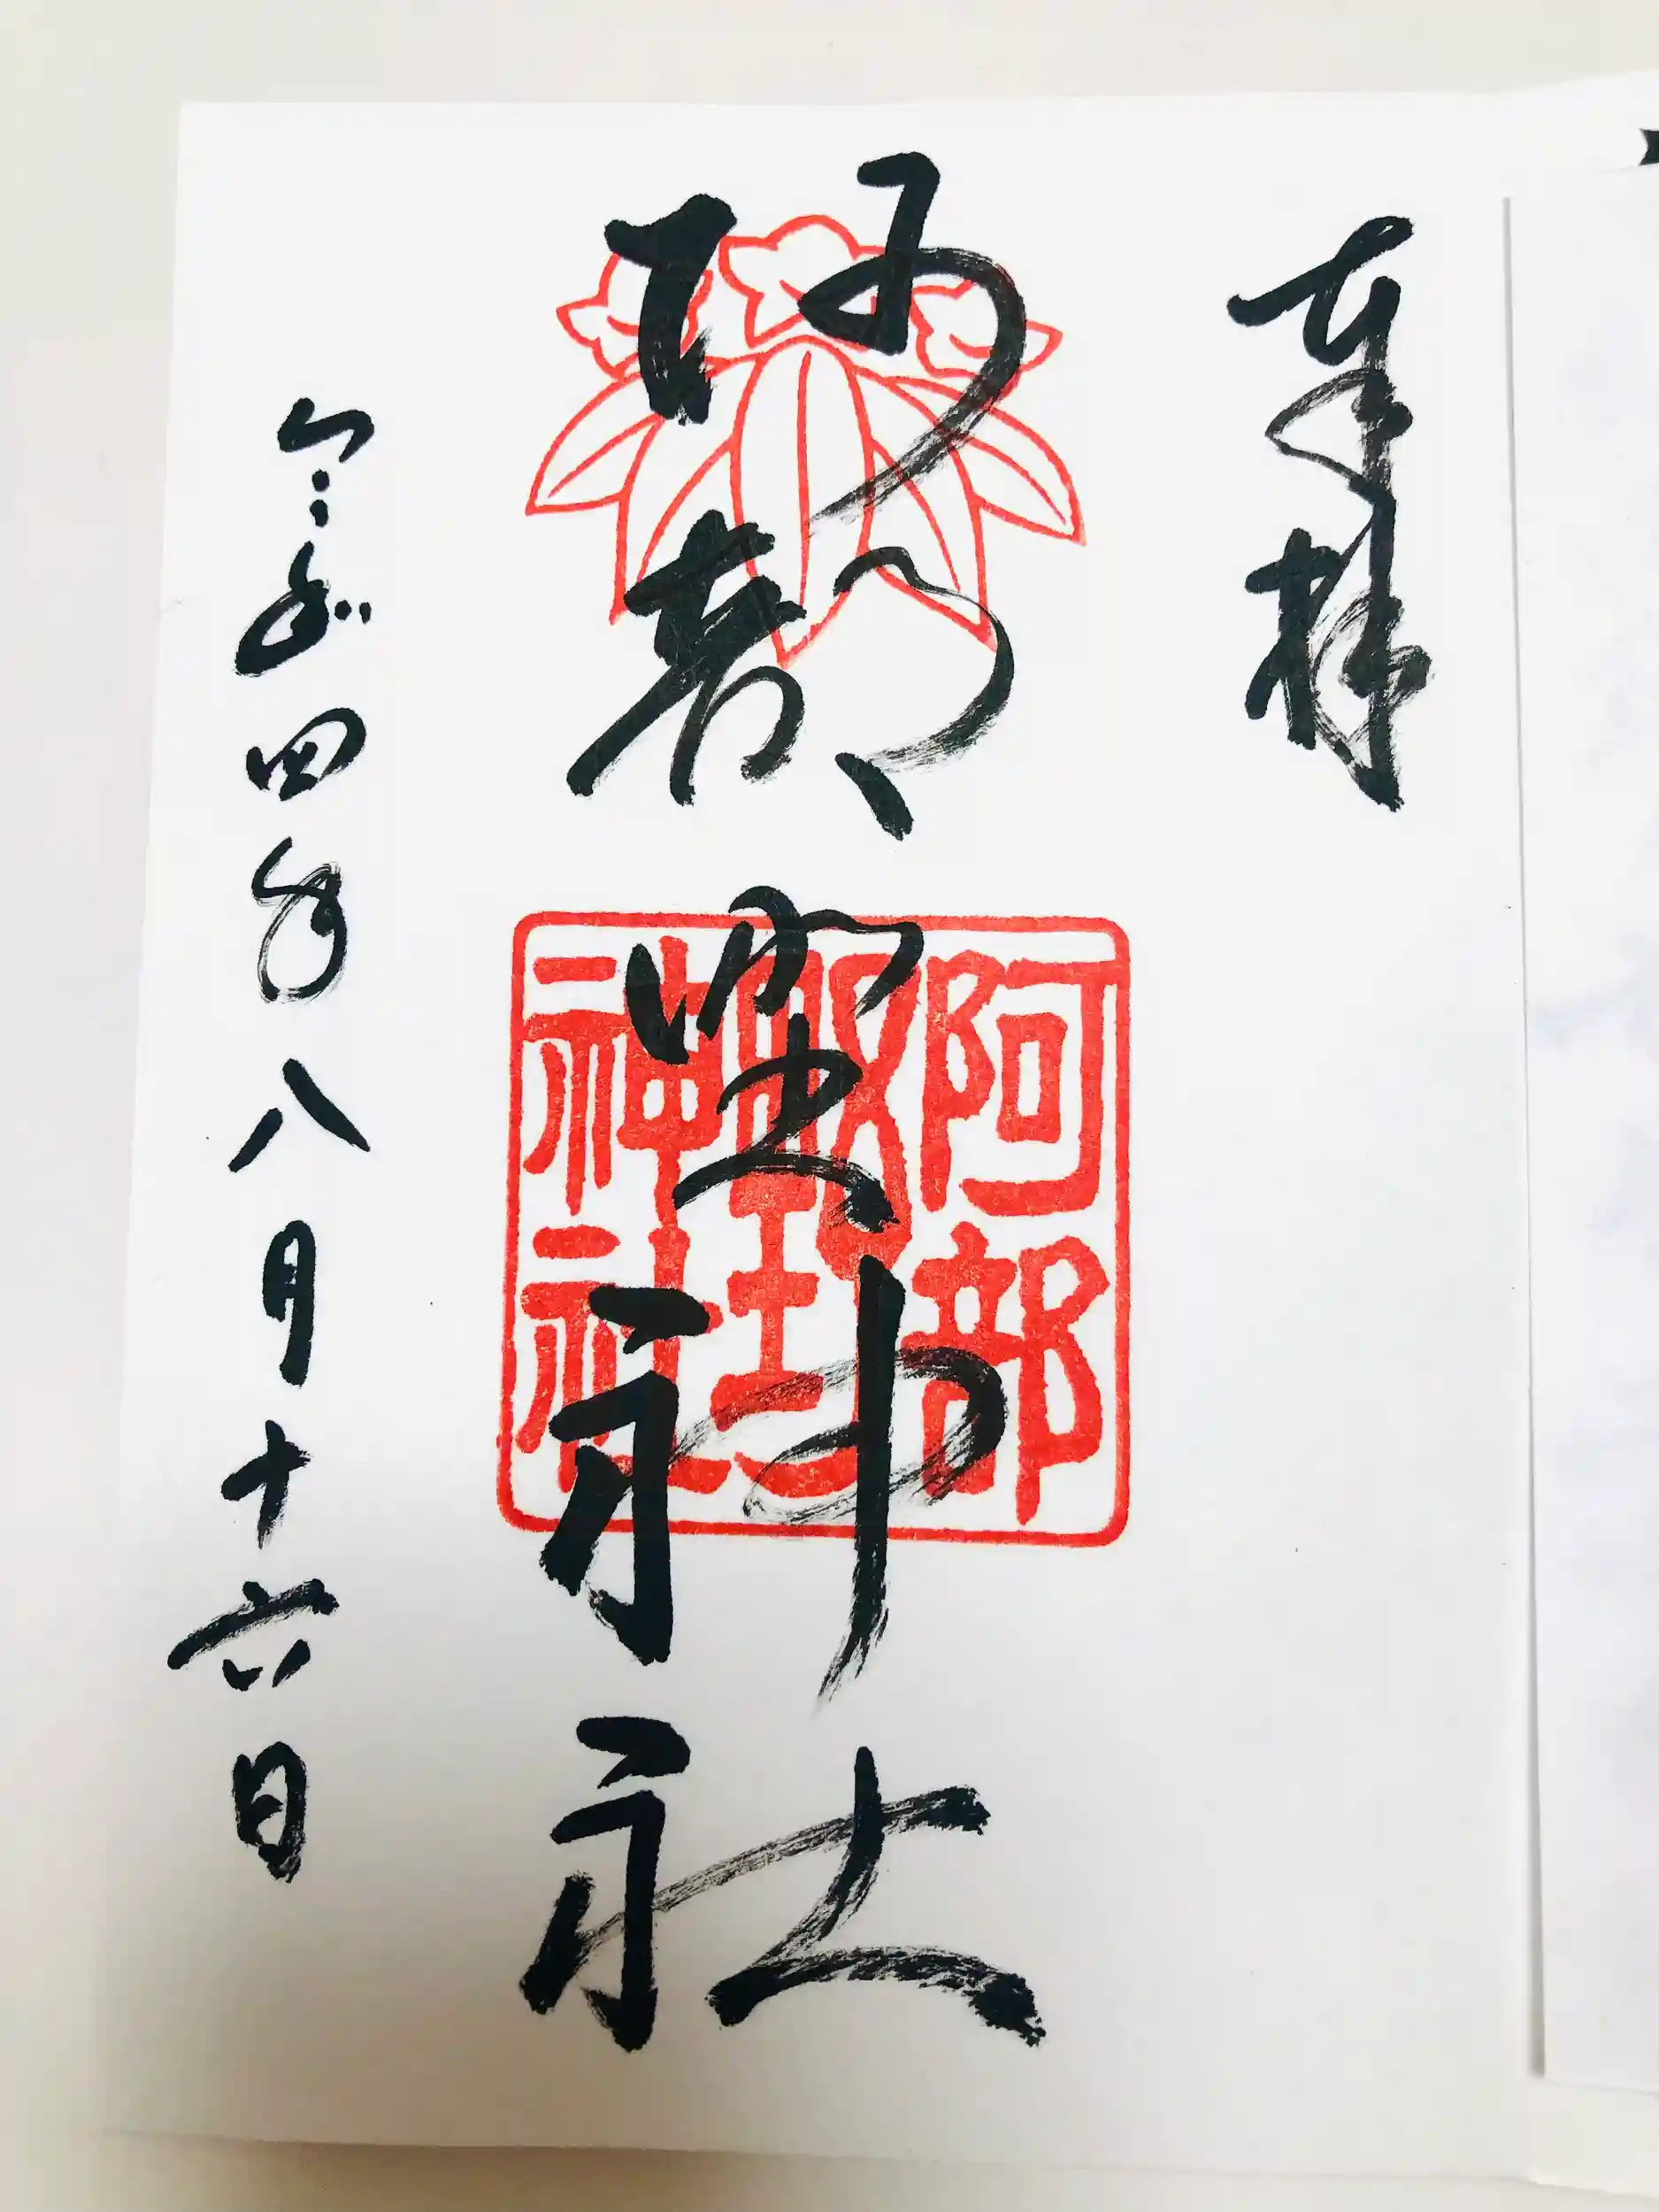 奉拝
阿部野神社
阿部
神社
令和四年八月十六日